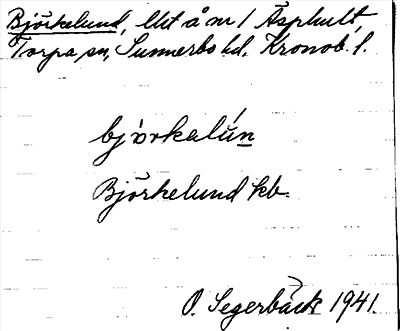 Björkelund, lht å nr 1 Äsphult,
Torpa sn, Sunnerbo hd, Kronob. l.
bjö̀rkalún
Björkelund kb.
O. Segerbäck 1941.